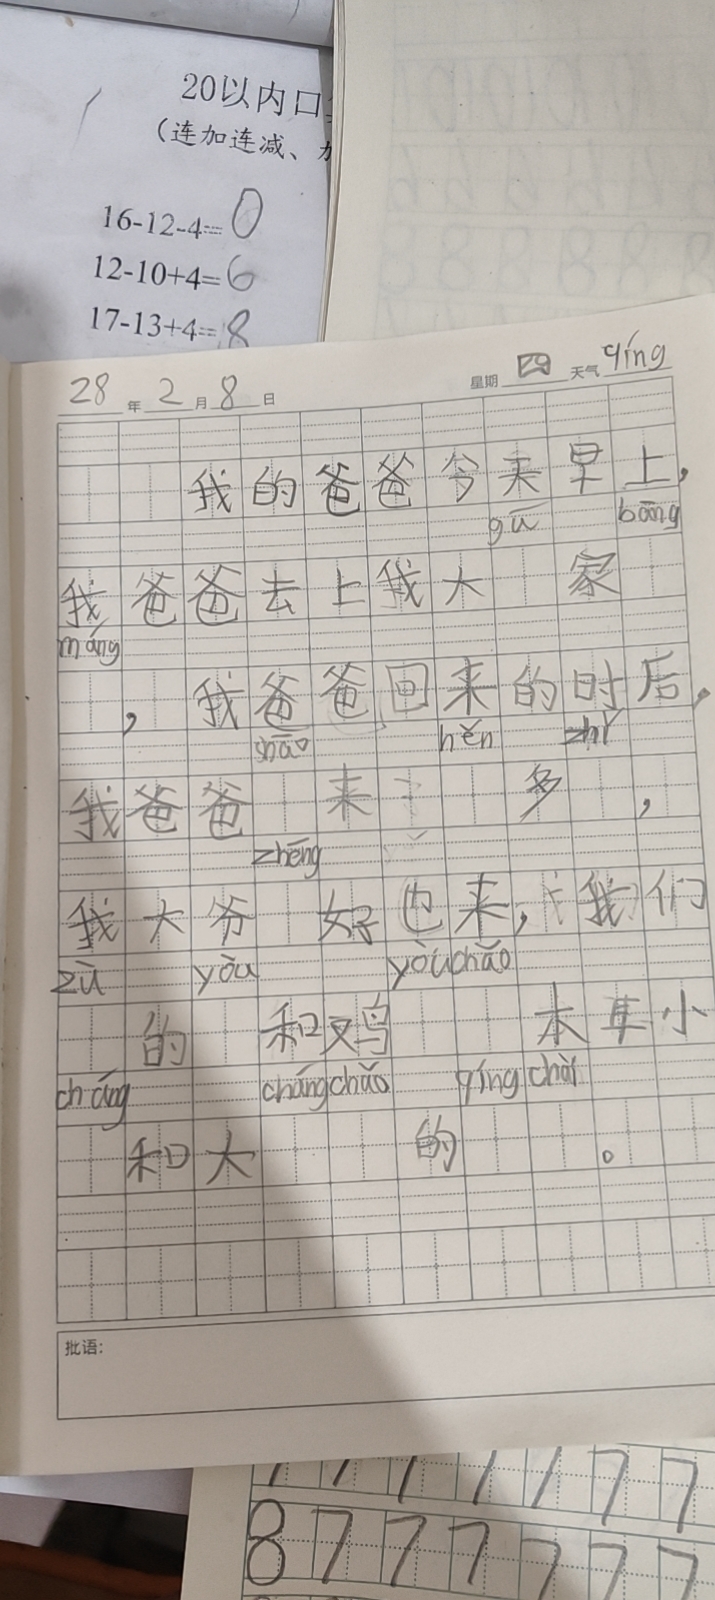 20以内口
(连加连减、
16-12-4=0
12-10+4=6
17-13+4=8
28年2月8日 星期四 天气qíng
我的爸爸今天早上，
gū bāng
我爸爸去上我大 家
máng
，我爸爸回来的时后，
shāo hěn zhǐ
我爸爸 来 多 ，
zhēng
我大爷 好也来，我们
zū yòu yòu chǎo
的 和鸡 本耳小
cháng cháng chǎo qíng chài
和大 的 。
批语：
7 7 7 7 7 7 7
8 7 7 7 7 7 7